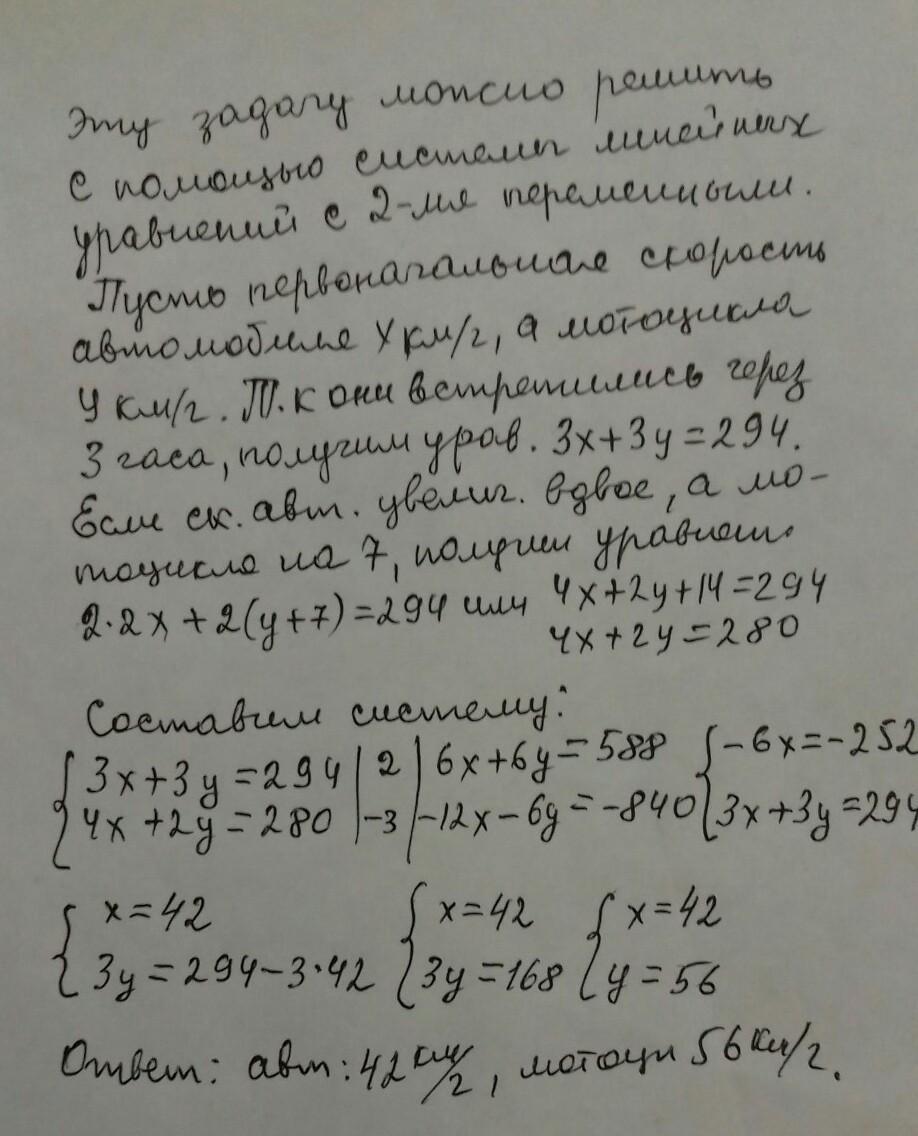 Эту задачу можно решить
с помощью системы линейных
уравнений с 2-мя переменными.
Пусть первоначальная скорость
автомобиля х км/ч, а мотоцикла
у км/ч. Т.к они встретились через
3 часа, получим урав. 3x+3y=294.
Если ск. авт. увелич. вдвое, а мо-
тоцикла на 7, получим уравнен.
2·2x+2(y+7)=294 или 4x+2y+14=294
4x+2y=280
Составим систему:
{3x+3y=294 | 2 | 6x+6y=588 {-6x=-252
{4x+2y=280 |-3 |-12x-6y=-840 {3x+3y=294
{x=42 {x=42 {x=42
{3y=294-3·42 {3y=168 {y=56
Ответ: авт: 42 км/ч, мотоци 56 км/ч.